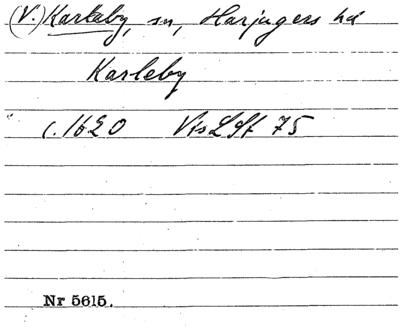 (V.) Karleby, sn, Harjagers hd
Karleby
c. 1620 VtsLSt 75
Nr 5615.